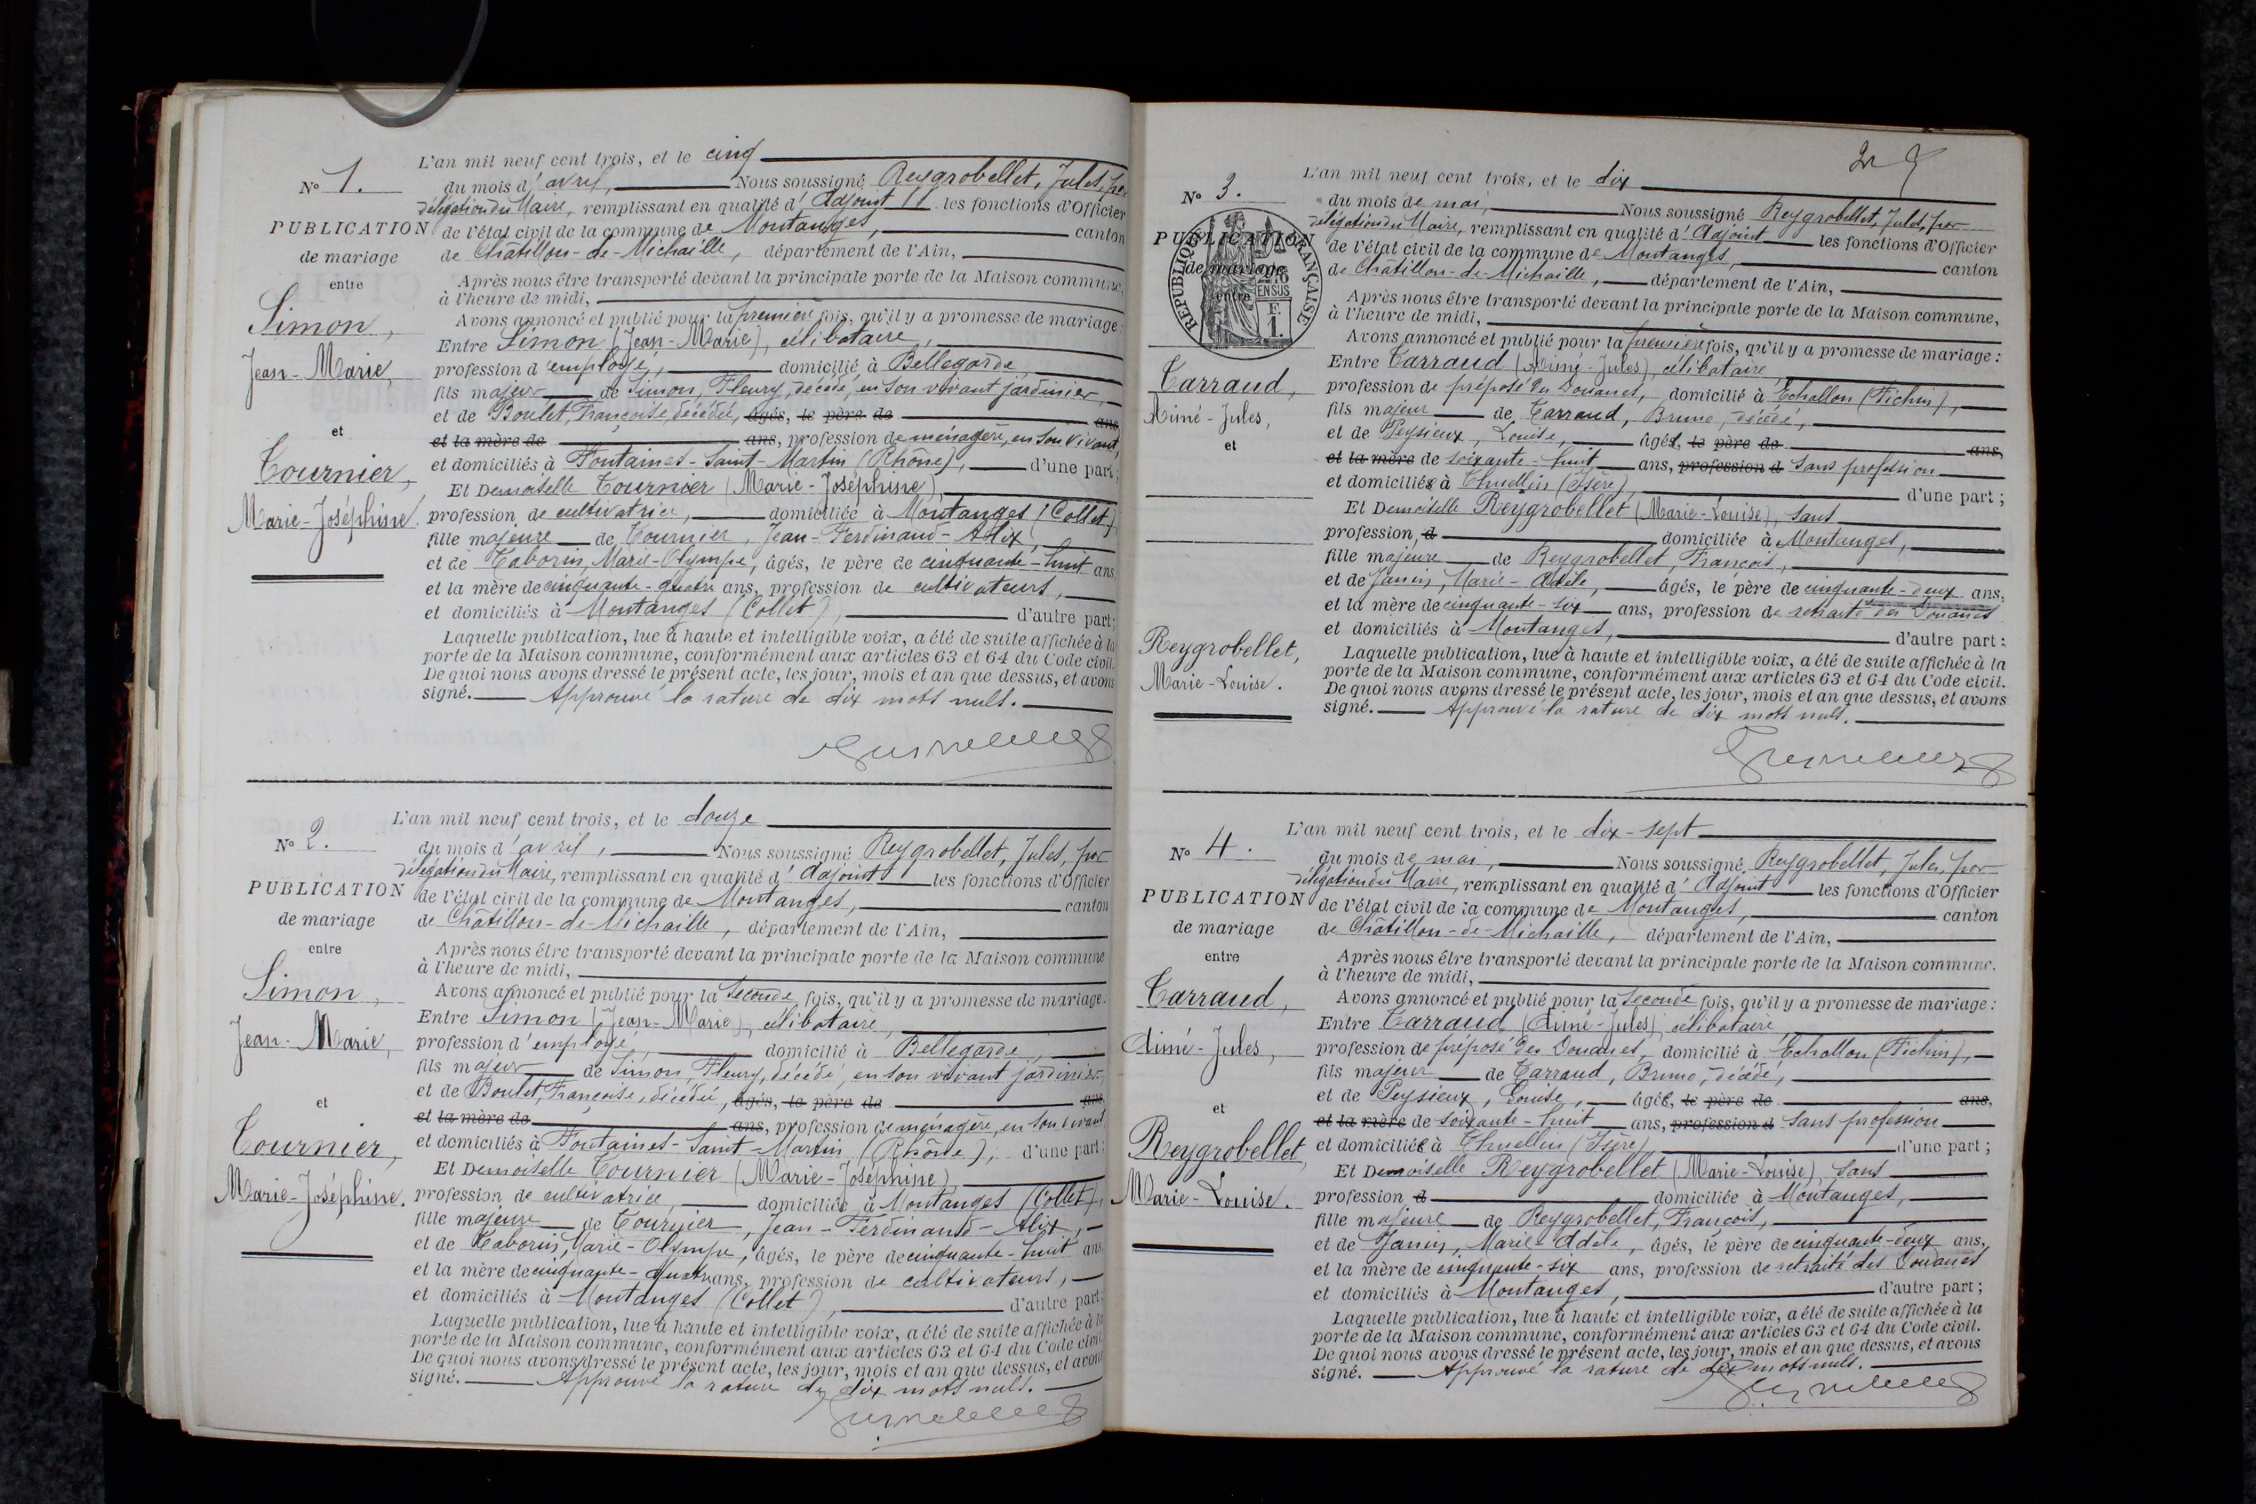 L'an mil neuf cent trois, et le cinq
N° 1.
du mois d'avril, Nous soussigné Reygrobellet, Jules, par
délégation du Maire, remplissant en qualité d'Adjoint les fonctions d'Officier
PUBLICATION
de mariage
entre
Simon,
Jean-Marie,
et
Tournier,
Marie-Joséphine.
de l'état civil de la commune de Montanges, canton
de Châtillon-de-Michaille, département de l'Ain,
Après nous être transporté devant la principale porte de la Maison commune,
à l'heure de midi,
Avons annoncé et publié pour la première fois, qu'il y a promesse de mariage:
Entre Simon (Jean-Marie), célibataire,
profession d'employé, domicilié à Bellegarde,
fils majeur de Simon, Fleury, décédé, en son vivant jardinier,
et de Boulet, Françoise, décédée, âgés, le père de ans
et la mère de ans, profession de ménagère, en son vivant,
et domiciliés à Fontaines-Saint-Martin (Rhône), d'une part;
Et Demoiselle Tournier (Marie-Joséphine),
profession de cultivatrice, domiciliée à Montanges (Collet),
fille majeure de Tournier, Jean-Ferdinand-Alix,
et de Taborin, Marie-Olympe, âgés, le père de cinquante-huit ans
et la mère de cinquante-quatre ans, profession de cultivateurs,
et domiciliés à Montanges (Collet), d'autre part;
Laquelle publication, lue à haute et intelligible voix, a été de suite affichée à la
porte de la Maison commune, conformément aux articles 63 et 64 du Code civil.
De quoi nous avons dressé le présent acte, les jour, mois et an que dessus, et avons
signé. Approuvé la rature de dix mots nuls.
L'an mil neuf cent trois, et le douze
N° 2.
du mois d'avril, Nous soussigné Reygrobellet, Jules, par
délégation du Maire, remplissant en qualité d'Adjoint les fonctions d'Officier
PUBLICATION
de mariage
entre
Simon,
Jean-Marie,
et
Tournier,
Marie-Joséphine.
de l'état civil de la commune de Montanges, canton
de Châtillon-de-Michaille, département de l'Ain,
Après nous être transporté devant la principale porte de la Maison commune
à l'heure de midi,
Avons annoncé et publié pour la seconde fois, qu'il y a promesse de mariage.
Entre Simon (Jean-Marie), célibataire,
profession d'employé, domicilié à Bellegarde,
fils majeur de Simon Fleury, décédé, en son vivant jardinier,
et de Boulet, Françoise, décédée, âgés, le père de ans
et la mère de ans, profession de ménagère, en son vivant
et domiciliés à Fontaines-Saint-Martin (Rhône), d'une part;
Et Demoiselle Tournier (Marie-Joséphine),
profession de cultivatrice, domiciliée à Montanges (Collet),
fille majeure de Tournier, Jean-Ferdinand-Alix,
et de Taborin, Marie-Olympe, âgés, le père de cinquante-huit ans
et la mère de cinquante-quatre ans, profession de cultivateurs,
et domiciliés à Montanges (Collet), d'autre part;
Laquelle publication, lue à haute et intelligible voix, a été de suite affichée à la
porte de la Maison commune, conformément aux articles 63 et 64 du Code civil.
De quoi nous avons dressé le présent acte, les jour, mois et an que dessus, et avons
signé. Approuvé la rature de dix mots nuls.
L'an mil neuf cent trois, et le dix
N° 3.
du mois de mai, Nous soussigné Reygrobellet, Jules, par
délégation du Maire, remplissant en qualité d'Adjoint les fonctions d'Officier
PUBLICATION
de mariage
entre
RÉPUBLIQUE FRANÇAISE
EN SUS
F.
1.
Carraud,
Aimé-Jules,
et
Reygrobellet,
Marie-Louise.
de l'état civil de la commune de Montanges, canton
de Châtillon-de-Michaille, département de l'Ain,
Après nous être transporté devant la principale porte de la Maison commune,
à l'heure de midi,
Avons annoncé et publié pour la première fois, qu'il y a promesse de mariage:
Entre Carraud (Aimé-Jules), célibataire,
profession de préposé des Douanes, domicilié à Echallon
fils majeur de Carraud, Bruno, décédé,
et de Peysieux, Louise, âgée, le père de ans,
et la mère de soixante-huit ans, profession d sans profession
et domiciliée à Thuellin (Isère), d'une part;
Et Demoiselle Reygrobellet (Marie-Louise), sans
profession, d domiciliée à Montanges,
fille majeure de Reygrobellet, François,
et de Janin, Marie-Adèle, âgés, le père de cinquante-deux ans,
et la mère de cinquante-six ans, profession de retraité des Douanes
et domiciliés à Montanges, d'autre part:
Laquelle publication, lue à haute et intelligible voix, a été de suite affichée à la
porte de la Maison commune, conformément aux articles 63 et 64 du Code civil.
De quoi nous avons dressé le présent acte, les jour, mois et an que dessus, et avons
signé. Approuvé la rature de dix mots nuls.
L'an mil neuf cent trois, et le dix-sept
N° 4.
du mois de mai, Nous soussigné Reygrobellet, Jules, par
délégation du Maire, remplissant en qualité d'Adjoint les fonctions d'Officier
PUBLICATION
de mariage
entre
Carraud,
Aimé-Jules,
et
Reygrobellet,
Marie-Louise.
de l'état civil de la commune de Montanges, canton
de Châtillon-de-Michaille, département de l'Ain,
Après nous être transporté devant la principale porte de la Maison commune.
à l'heure de midi,
Avons annoncé et publié pour la seconde fois, qu'il y a promesse de mariage:
Entre Carraud (Aimé-Jules), célibataire,
profession de préposé des Douanes, domicilié à Echallon
fils majeur de Carraud, Bruno, décédé,
et de Peysieux, Louise, âgée, le père de ans,
et la mère de soixante-huit ans, profession d sans profession
et domiciliée à Thuellin (Isère) d'une part;
Et Demoiselle Reygrobellet (Marie-Louise), sans
profession d domiciliée à Montanges,
fille majeure de Reygrobellet, François,
et de Janin, Marie-Adèle, âgés, le père de cinquante-deux ans,
et la mère de cinquante-six ans, profession de retraité des Douanes
et domiciliés à Montanges, d'autre part;
Laquelle publication, lue à haute et intelligible voix, a été de suite affichée à la
porte de la Maison commune, conformément aux articles 63 et 64 du Code civil.
De quoi nous avons dressé le présent acte, les jour, mois et an que dessus, et avons
signé. Approuvé la rature de dix mots nuls.